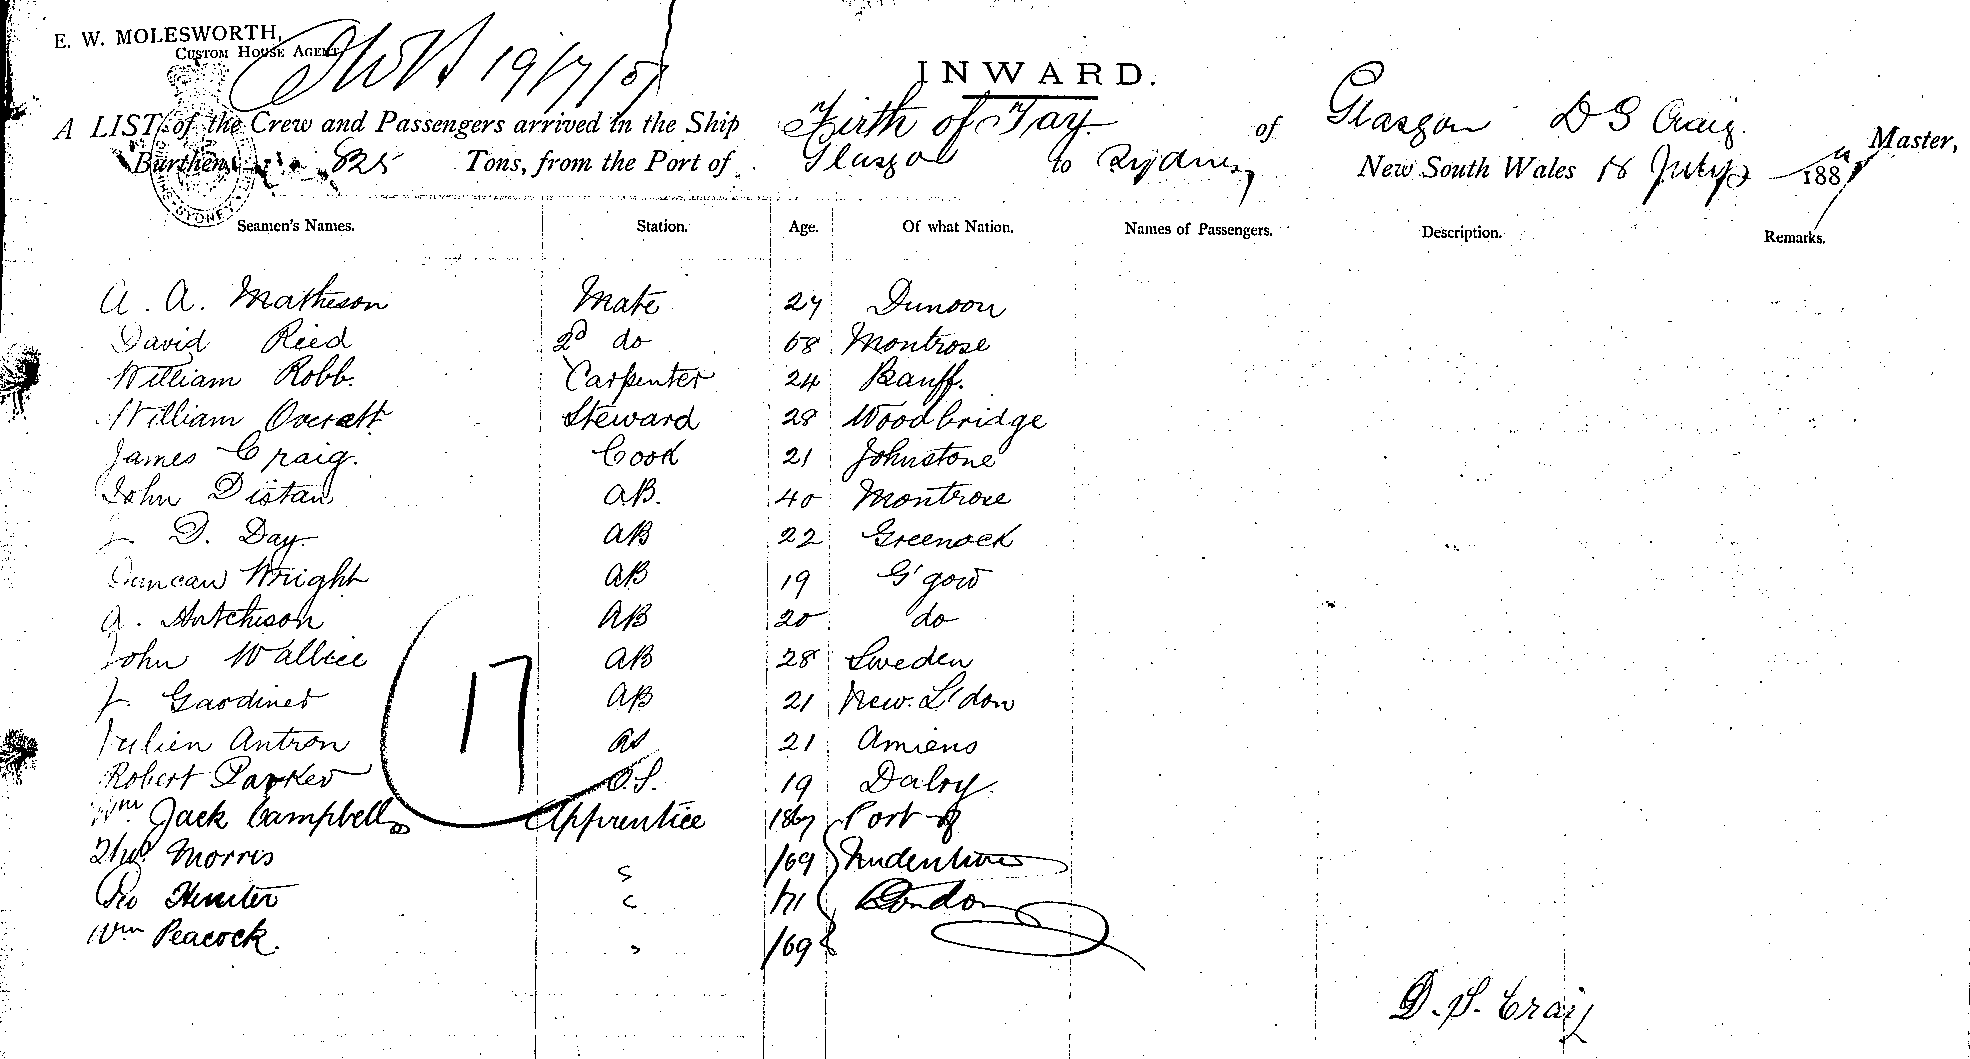 E. W. MOLESWORTH,
CUSTOM HOUSE AGENT,
19/7/87
INWARD.
A LIST of the Crew and Passengers arrived in the Ship Firth of Tay of Glasgow D S Craig Master,
Burthen 825 Tons, from the Port of Glasgow to Sydney New South Wales 18 July 188
SYDNEY
Seamen's Names. Station. Age. Of what Nation. Names of Passengers. Description. Remarks.
A. A. Matheson Mate 27 Dunoon
David Reid 2d do 58 Montrose
William Robb. Carpenter 24 Banff.
William Overett Steward 28 Woodbridge
James Craig. Cook 21 Johnstone
John Distan AB. 40 Montrose
D. Day. AB 22 Greenock
Duncan Wright AB 19 G'gow
A. Hutchison AB 20 do
John Wallice AB 28 Sweden
J. Gardiner AB 21 New. L'don
17
Julien Antron 21 Amiens
Robert Parker O.S. 19 Dalry.
Wm Jack Campbell Apprentice 1867 Port of
Thos Morris " /69
Geo Hunter " /71 London
Wm Peacock. " /69
D. S. Craig